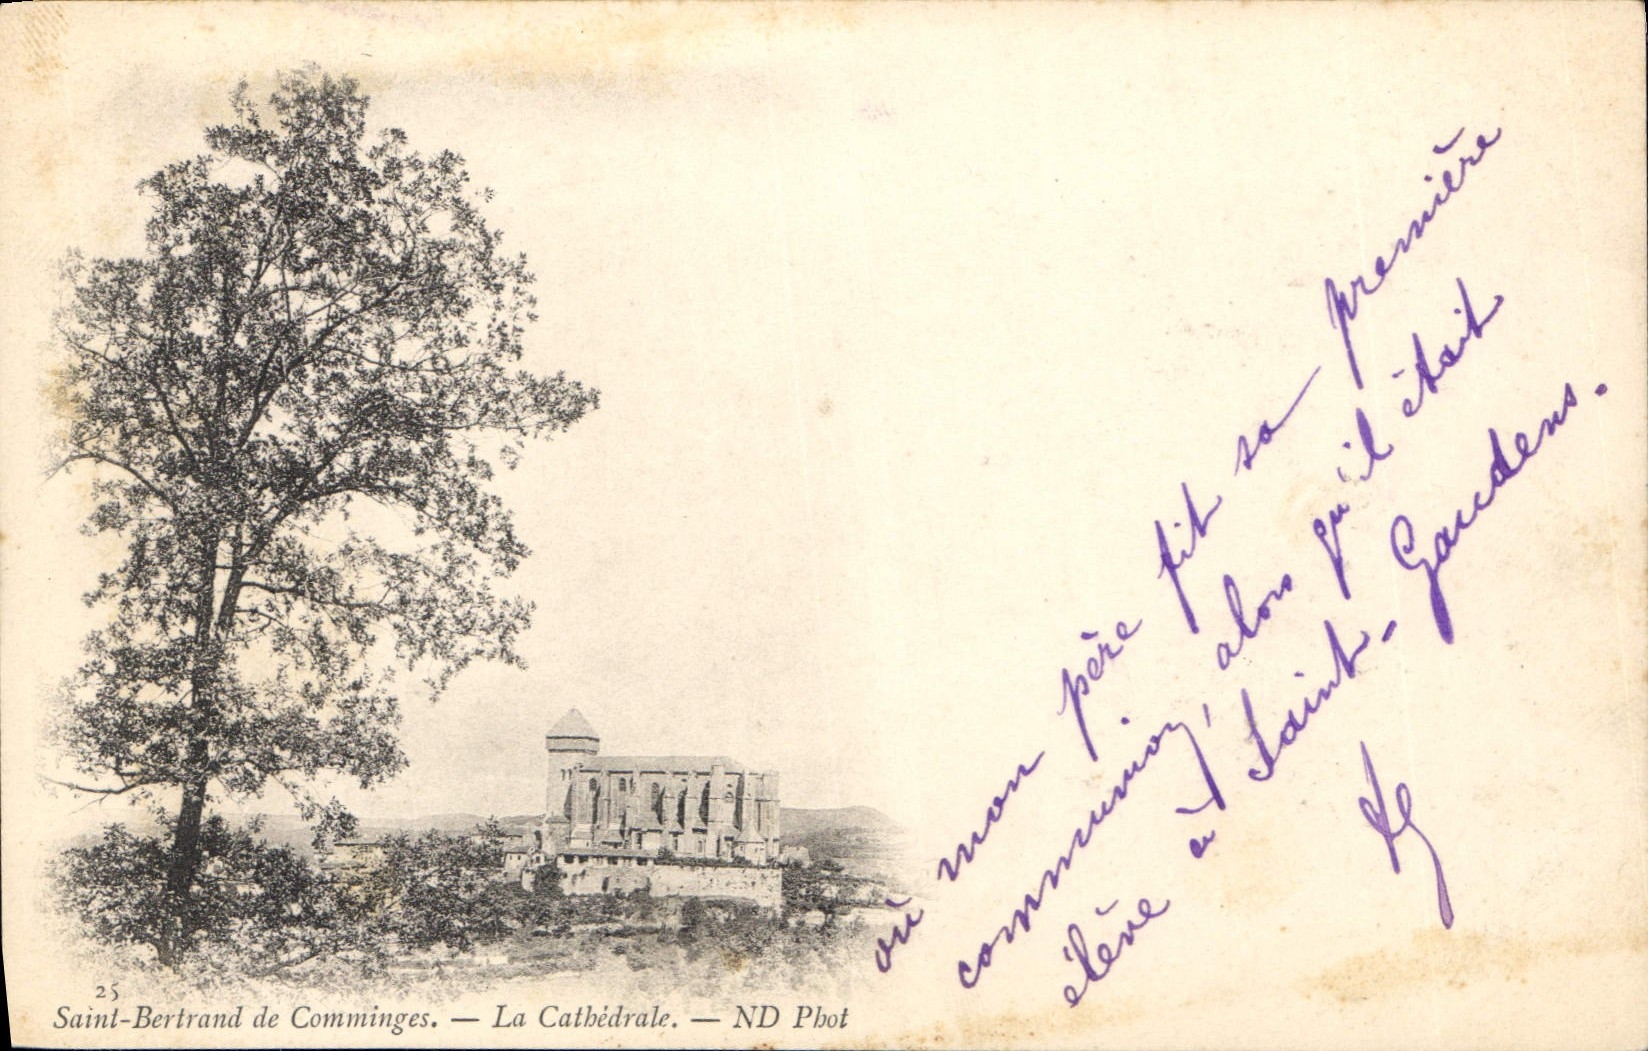 25
Saint-Bertrand de Comminges. — La Cathédrale. — ND Phot
où mon père fit sa première
communion, alors qu'il était
élève à Saint-Gaudens.